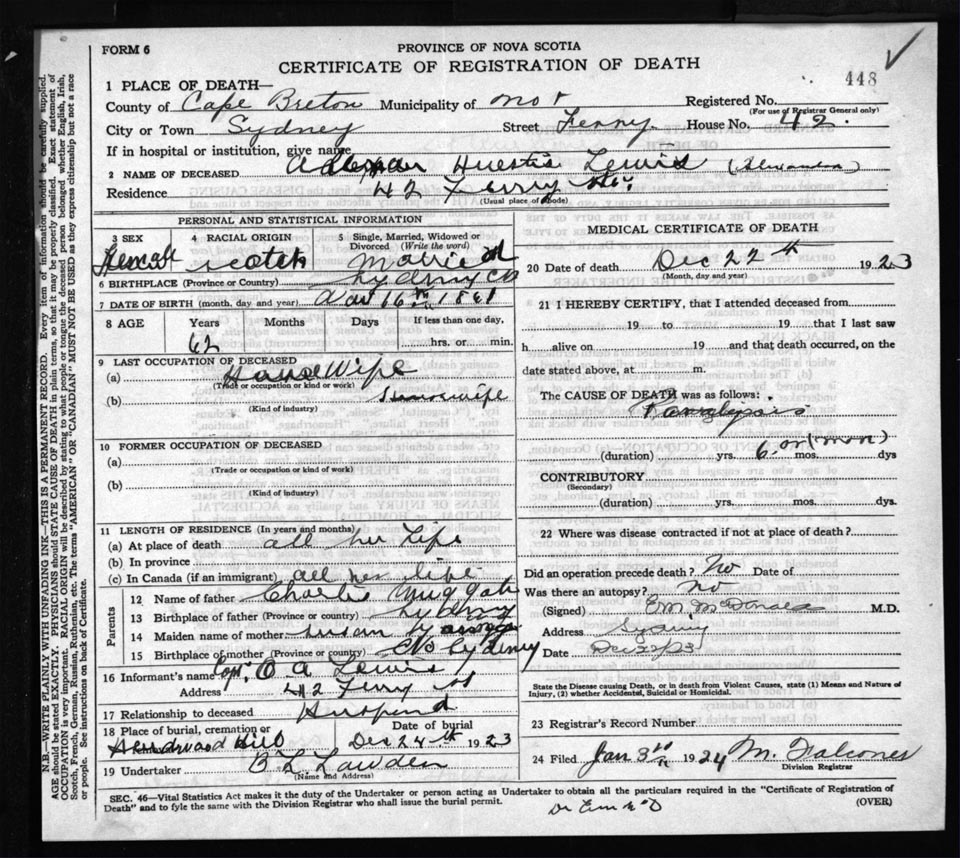 FORM 6
PROVINCE OF NOVA SCOTIA
CERTIFICATE OF REGISTRATION OF DEATH
448
1 PLACE OF DEATH—
County of Cape Breton Municipality of
Registered No.
(For use of Registrar General only)
City or Town Sydney Street Ferry House No. 42.
If in hospital or institution, give name
2 NAME OF DECEASED Huestis Lewis
Residence 42 Ferry Str
(Usual place of abode)
PERSONAL AND STATISTICAL INFORMATION
3 SEX
4 RACIAL ORIGIN
5 Single, Married, Widowed or Divorced (Write the word)
Scotch Married
6 BIRTHPLACE (Province or Country) Sydney CB
7 DATE OF BIRTH (month, day and year) 16th 1861
8 AGE Years Months Days If less than one day,
62 hrs. or min.
9 LAST OCCUPATION OF DECEASED
(a) House Wife
(Trade or occupation or kind of work)
(b)
(Kind of industry)
10 FORMER OCCUPATION OF DECEASED
(a)
(Trade or occupation or kind of work)
(b)
(Kind of industry)
11 LENGTH OF RESIDENCE (In years and months)
(a) At place of death all her Life
(b) In province
(c) In Canada (if an immigrant) all her life
Parents
12 Name of father Charlie Muggah
13 Birthplace of father (Province or country) Sydney
14 Maiden name of mother Susan
15 Birthplace of mother (Province or country) Sydney
16 Informant's name Capt. O A Lewis
Address 42 Ferry st
17 Relationship to deceased Husbend
18 Place of burial, cremation or
Date of burial
Hardwood Hill Dec 24th 1923
19 Undertaker B L Lawden
(Name and Address)
MEDICAL CERTIFICATE OF DEATH
20 Date of death Dec 22th 1923
(Month, day and year)
21 I HEREBY CERTIFY, that I attended deceased from
19 to 19 that I last saw
h alive on 19 and that death occurred, on the
date stated above, at m.
The CAUSE OF DEATH was as follows:
Paralysis
(duration) yrs. 6 mos. dys
CONTRIBUTORY
(Secondary)
(duration) yrs. mos. dys.
22 Where was disease contracted if not at place of death?
Did an operation precede death? No Date of
Was there an autopsy? no
(Signed) EM McDonald M.D.
Address Sydney
Date
State the Disease causing Death, or in death from Violent Causes, state (1) Means and Nature of Injury, (2) whether Accidental, Suicidal or Homicidal.
23 Registrar's Record Number
24 Filed Jan 3rd 1924
Division Registrar
SEC. 46—Vital Statistics Act makes it the duty of the Undertaker or person acting as Undertaker to obtain all the particulars required in the "Certificate of Registration of
Death" and to fyle the same with the Division Registrar who shall issue the burial permit.
(OVER)
N.B.—WRITE PLAINLY WITH UNFADING INK—THIS IS A PERMANENT RECORD. Every item of information should be carefully supplied.
AGE should be stated EXACTLY. PHYSICIANS should STATE CAUSE OF DEATH in plain terms, so that it may be properly classified. Exact statement of
OCCUPATION is very important. RACIAL ORIGIN will be described by stating to what people or tongue the deceased person belonged whether English, Irish,
Scotch, French, German, Russian, Ruthenian, etc. The terms "AMERICAN" OR "CANADIAN" MUST NOT BE USED as they express citizenship but not a race
or people. See instructions on back of Certificate.